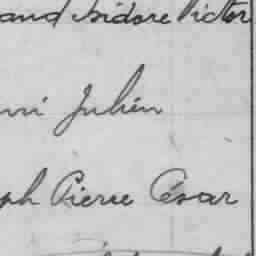 and Isidore Victor
nri Julien
ph Pierre César